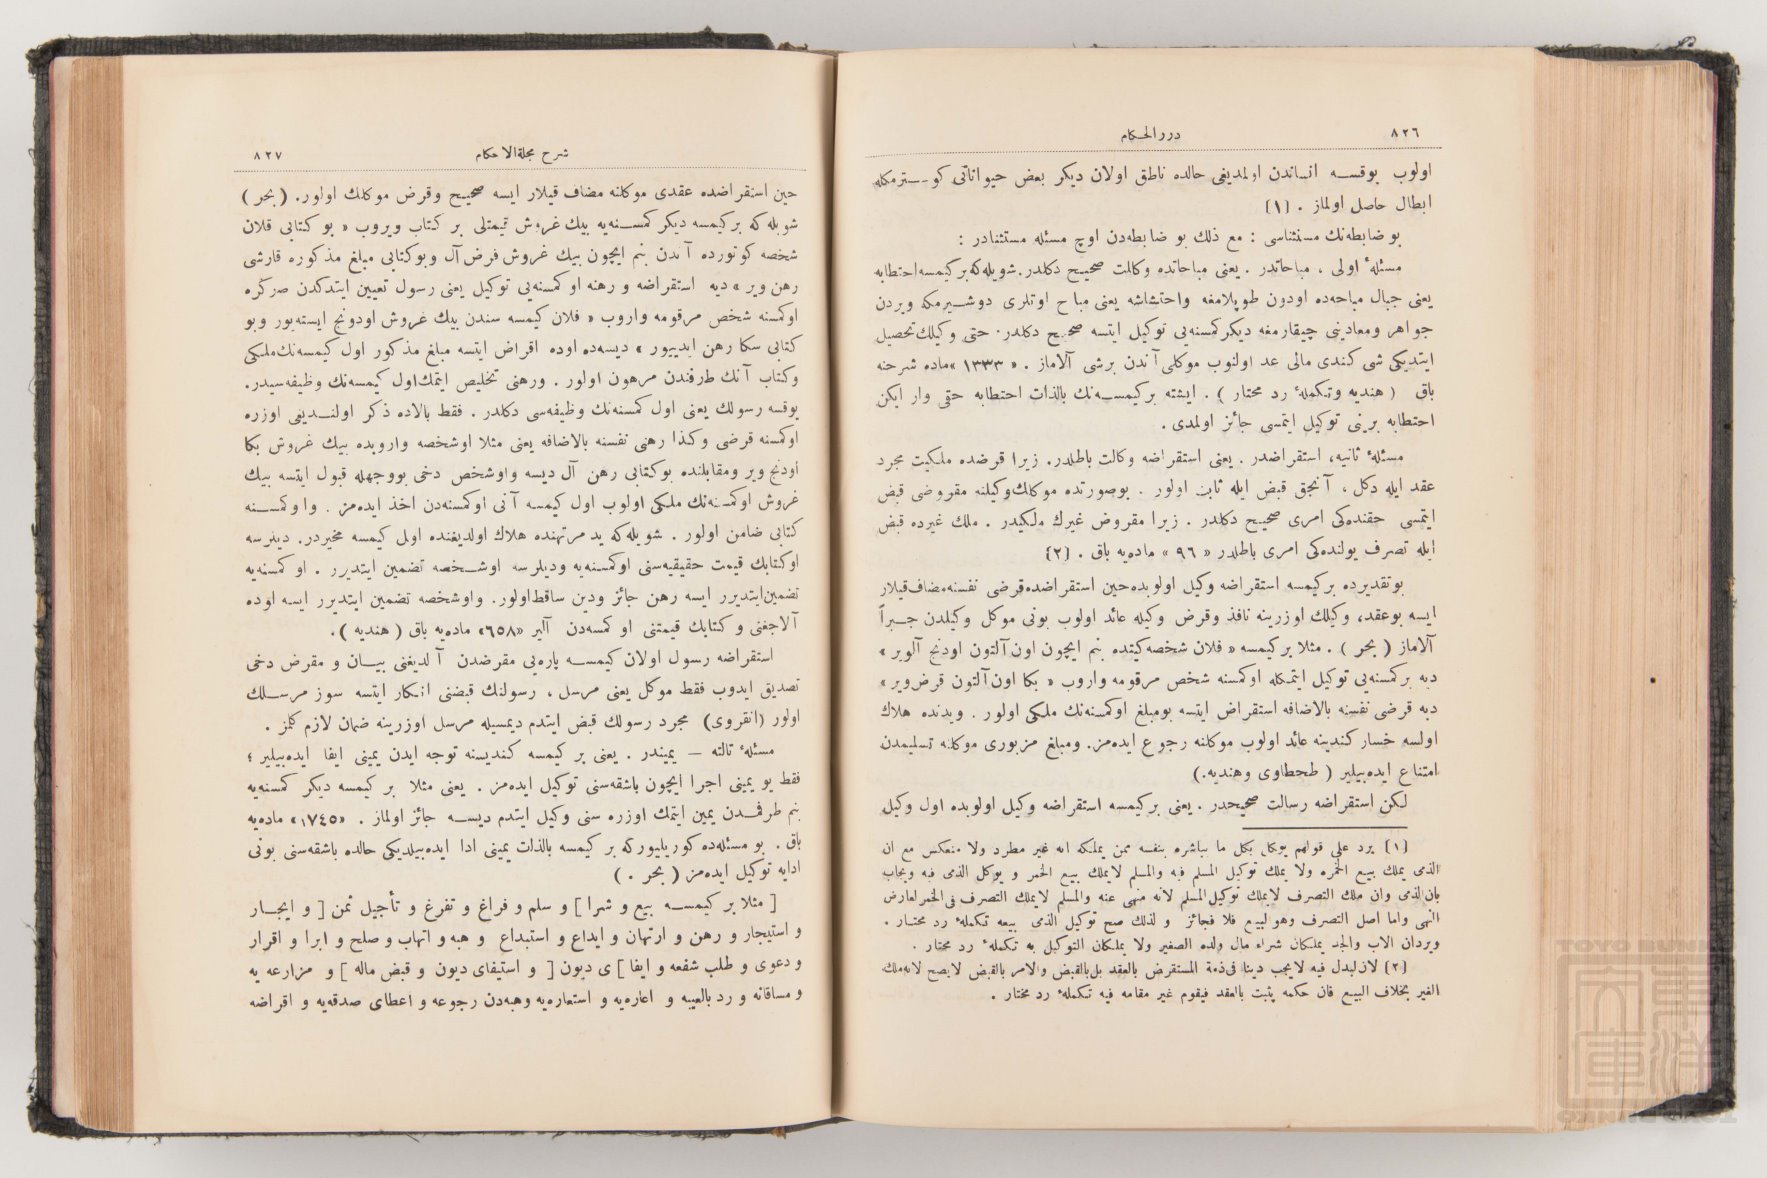 ٨٢٦
دررالحكام
اولوب يوقسه انساندن اولمديغى حالده ناطق اولان ديكر بعض حيواناتى كوسترمكله
ابطال حاصل اولماز . [١]
بو ضابطه‌نك مستثناسى : مع ذلك بو ضابطه‌دن اوچ مسئله مستثنادر :
مسئلهٔ اولى ، مباحاتدر . يعنى مباحاتده وكالت صحيح دكلدر. شويله‌كه بركيمسه احتطابه
يعنى جبال مباحه‌ده اودون طوپلامغه واحتشاشه يعنى مباح اوتلرى دوشيرمكه ويردن
جواهر ومعادينى چيقارمغه ديكركمسنه‌يى توكيل ايتسه صحيح دكلدر. حتى وكيلك تحصيل
ايتديكى شى كندى مالى عد اولنوب موكلى آندن برشى آلاماز . « ١٣٣٣ »ماده شرحنه
باق ( هنديه وتكملهٔ رد محتار ) . ايشته بركيمسه‌نك بالذات احتطابه حقى وار ايكن
احتطابه برينى توكيل ايتمسى جائز اولمدى .
مسئلهٔ ثانيه، استقراضدر . يعنى استقراضه وكالت باطلدر. زيرا قرضده ملكيت مجرد
عقد ايله دكل ، آنجق قبض ايله ثابت اولور . بوصورتده موكلك وكيلنه مقروضى قبض
ايتمسى حقنده‌كى امرى صحيح دكلدر . زيرا مقروض غيرك ملكيدر . ملك غيرده قبض
ايله تصرف يولنده‌كى امرى باطلدر « ٩٦ » ماده‌يه باق . [٢]
بوتقديرده بركيمسه استقراضه وكيل اولوبده‌حين استقراضده‌قرضى نفسنه‌مضاف‌قيلار
ايسه بوعقد، وكيلك اوزرينه نافذ وقرض وكيله عائد اولوب بونى موكل وكيلدن جبراً
آلاماز ( بحر ) . مثلا بركيمسه « فلان شخصه‌كيتده بنم ايچون اون‌آلتون اودنج آلوير »
ديه بركمسنه‌يى توكيل ايتمكله اوكمسنه شخص مرقومه واروب « بكا اون‌آلتون قرض‌وير »
ديه قرضى نفسنه بالاضافه استقراض ايتسه بومبلغ اوكمسنه‌نك ملكى اولور . ويدنده هلاك
اولسه خسار كندينه عائد اولوب موكلنه رجوع ايده‌مز. ومبلغ مزبورى موكلنه تسليمدن
امتناع ايده‌بيلير ( طحطاوى وهنديه.)
لكن استقراضه رسالت صحيحدر . يعنى بركيمسه استقراضه وكيل اولوبده اول وكيل
[١] يرد على قولهم يوكل بكل ما يباشره بنفسه ممن يملكه انه غير مطرد ولا منعكس مع ان
الذمى يملك بيع الخمره ولا يملك توكيل المسلم فيه والمسلم لايملك بيع الخمر و يوكل الذمى فيه ويجاب
بان‌الذمى وان ملك التصرف لايملك توكيل‌المسلم لانه منهى عنه والمسلم لايملك التصرف فى‌الخمرلعارض
النهى واما اصل التصرف وهوالبيع فلا فجائز و لذلك صح توكيل الذمى بيعه تكملهٔ رد محتار .
ويردان الاب والجد يملكان شراء مال ولده الصغير ولا يملكان التوكيل به تكملهٔ رد محتار .
[٢] لان‌لبدل فيه لايجب دينا فى‌ذمة المستقرض بالعقد بل‌بالقبض والامر بالقبض لايصح لانه‌ملك
الغير بخلاف البيع فان حكمه يثبت بالعقد فيقوم غير مقامه فيه تكملهٔ رد محتار .
شرح مجلةالاحكام
٨٢٧
حين استقراضده عقدى موكلنه مضاف قيلار ايسه صحيح وقرض موكلك اولور. ( بحر )
شويله‌كه بركيمسه ديكر كمسنه‌يه بيك غروش قيمتلى بر كتاب ويروب « بو كتابى فلان
شخصه كوتورده آندن بنم ايچون بيك غروش قرض آل وبوكتابى مبلغ مذكوره قارشى
رهن وير » ديه استقراضه و رهنه اوكمسنه‌يى توكيل يعنى رسول تعيين ايتدكدن صكره
اوكمسنه شخص مرقومه واروب « فلان كيمسه سندن بيك غروش اودونج ايسته‌يور وبو
كتابى سكا رهن ايدييور » ديسه‌ده اوده اقراض ايتسه مبلغ مذكور اول كيمسه‌نك‌ملكى
وكتاب آنك طرفندن مرهون اولور . ورهنى تخليص ايتمك‌اول كيمسه‌نك وظيفه‌سيدر.
يوقسه رسولك يعنى اول كمسنه‌نك وظيفه‌سى دكلدر . فقط بالاده ذكر اولنديغى اوزره
اوكمسنه قرضى وكذا رهنى نفسنه بالاضافه يعنى مثلا اوشخصه واروبده بيك غروش بكا
اودنج وير ومقابلنده بوكتابى رهن آل ديسه واوشخص دخى بووجهله قبول ايتسه بيك
غروش اوكمسنه‌نك ملكى اولوب اول كيمسه آنى اوكمسنه‌دن اخذ ايده‌مز . واوكمسنه
كتابى ضامن اولور . شويله‌كه يد مرتهنده هلاك اولديغنده اول كيمسه مخيردر. ديلرسه
اوكتابك قيمت حقيقيه‌سنى اوكمسنه‌يه وديلرسه اوشخصه تضمين ايتديرر . او كمسنه‌يه
تضمين‌ايتديرر ايسه رهن جائز ودين ساقط‌اولور. واوشخصه تضمين ايتديرر ايسه اوده
آلاجغنى و كتابك قيمتنى او كمسه‌دن آلير «٦٥٨» ماده‌يه باق ( هنديه ).
استقراضه رسول اولان كيمسه پاره‌يى مقرضدن آلديغنى بيان و مقرض دخى
تصديق ايدوب فقط موكل يعنى مرسل ، رسولنك قبضنى انكار ايتسه سوز مرسلك
اولور (انقروى) مجرد رسولك قبض ايتدم ديمسيله مرسل اوزرينه ضمان لازم كلمز .
مسئلهٔ ثالثه — يميندر . يعنى بر كيمسه كنديسنه توجه ايدن يمينى ايفا ايده‌بيلير ؛
فقط بو يمينى اجرا ايچون باشقه‌سنى توكيل ايده‌مز . يعنى مثلا بر كيمسه ديكر كمسنه‌يه
بنم طرفمدن يمين ايتمك اوزره سنى وكيل ايتدم ديسه جائز اولماز . «١٧٤٥» ماده‌يه
باق . بو مسئله‌ده كوريليوركه بر كيمسه بالذات يمينى ادا ايده‌بيلديكى حالده باشقه‌سنى بونى
ادايه توكيل ايده‌مز ( بحر . )
[ مثلا بر كيمسه بيع و شرا ] و سلم و فراغ و تفرغ و تأجيل ثمن [ و ايجار
و استيجار و رهن و ارتهان و ايداع و استبداع و هبه و اتهاب و صلح و ابرا و اقرار
و دعوى و طلب شفعه و ايفا ] ى ديون [ و استيفاى ديون و قبض ماله ] و مزارعه يه
و مساقاته و رد بالعيبه و اعاره‌يه و استعاره‌يه وهبه‌دن رجوعه و اعطاى صدقه‌يه و اقراضه